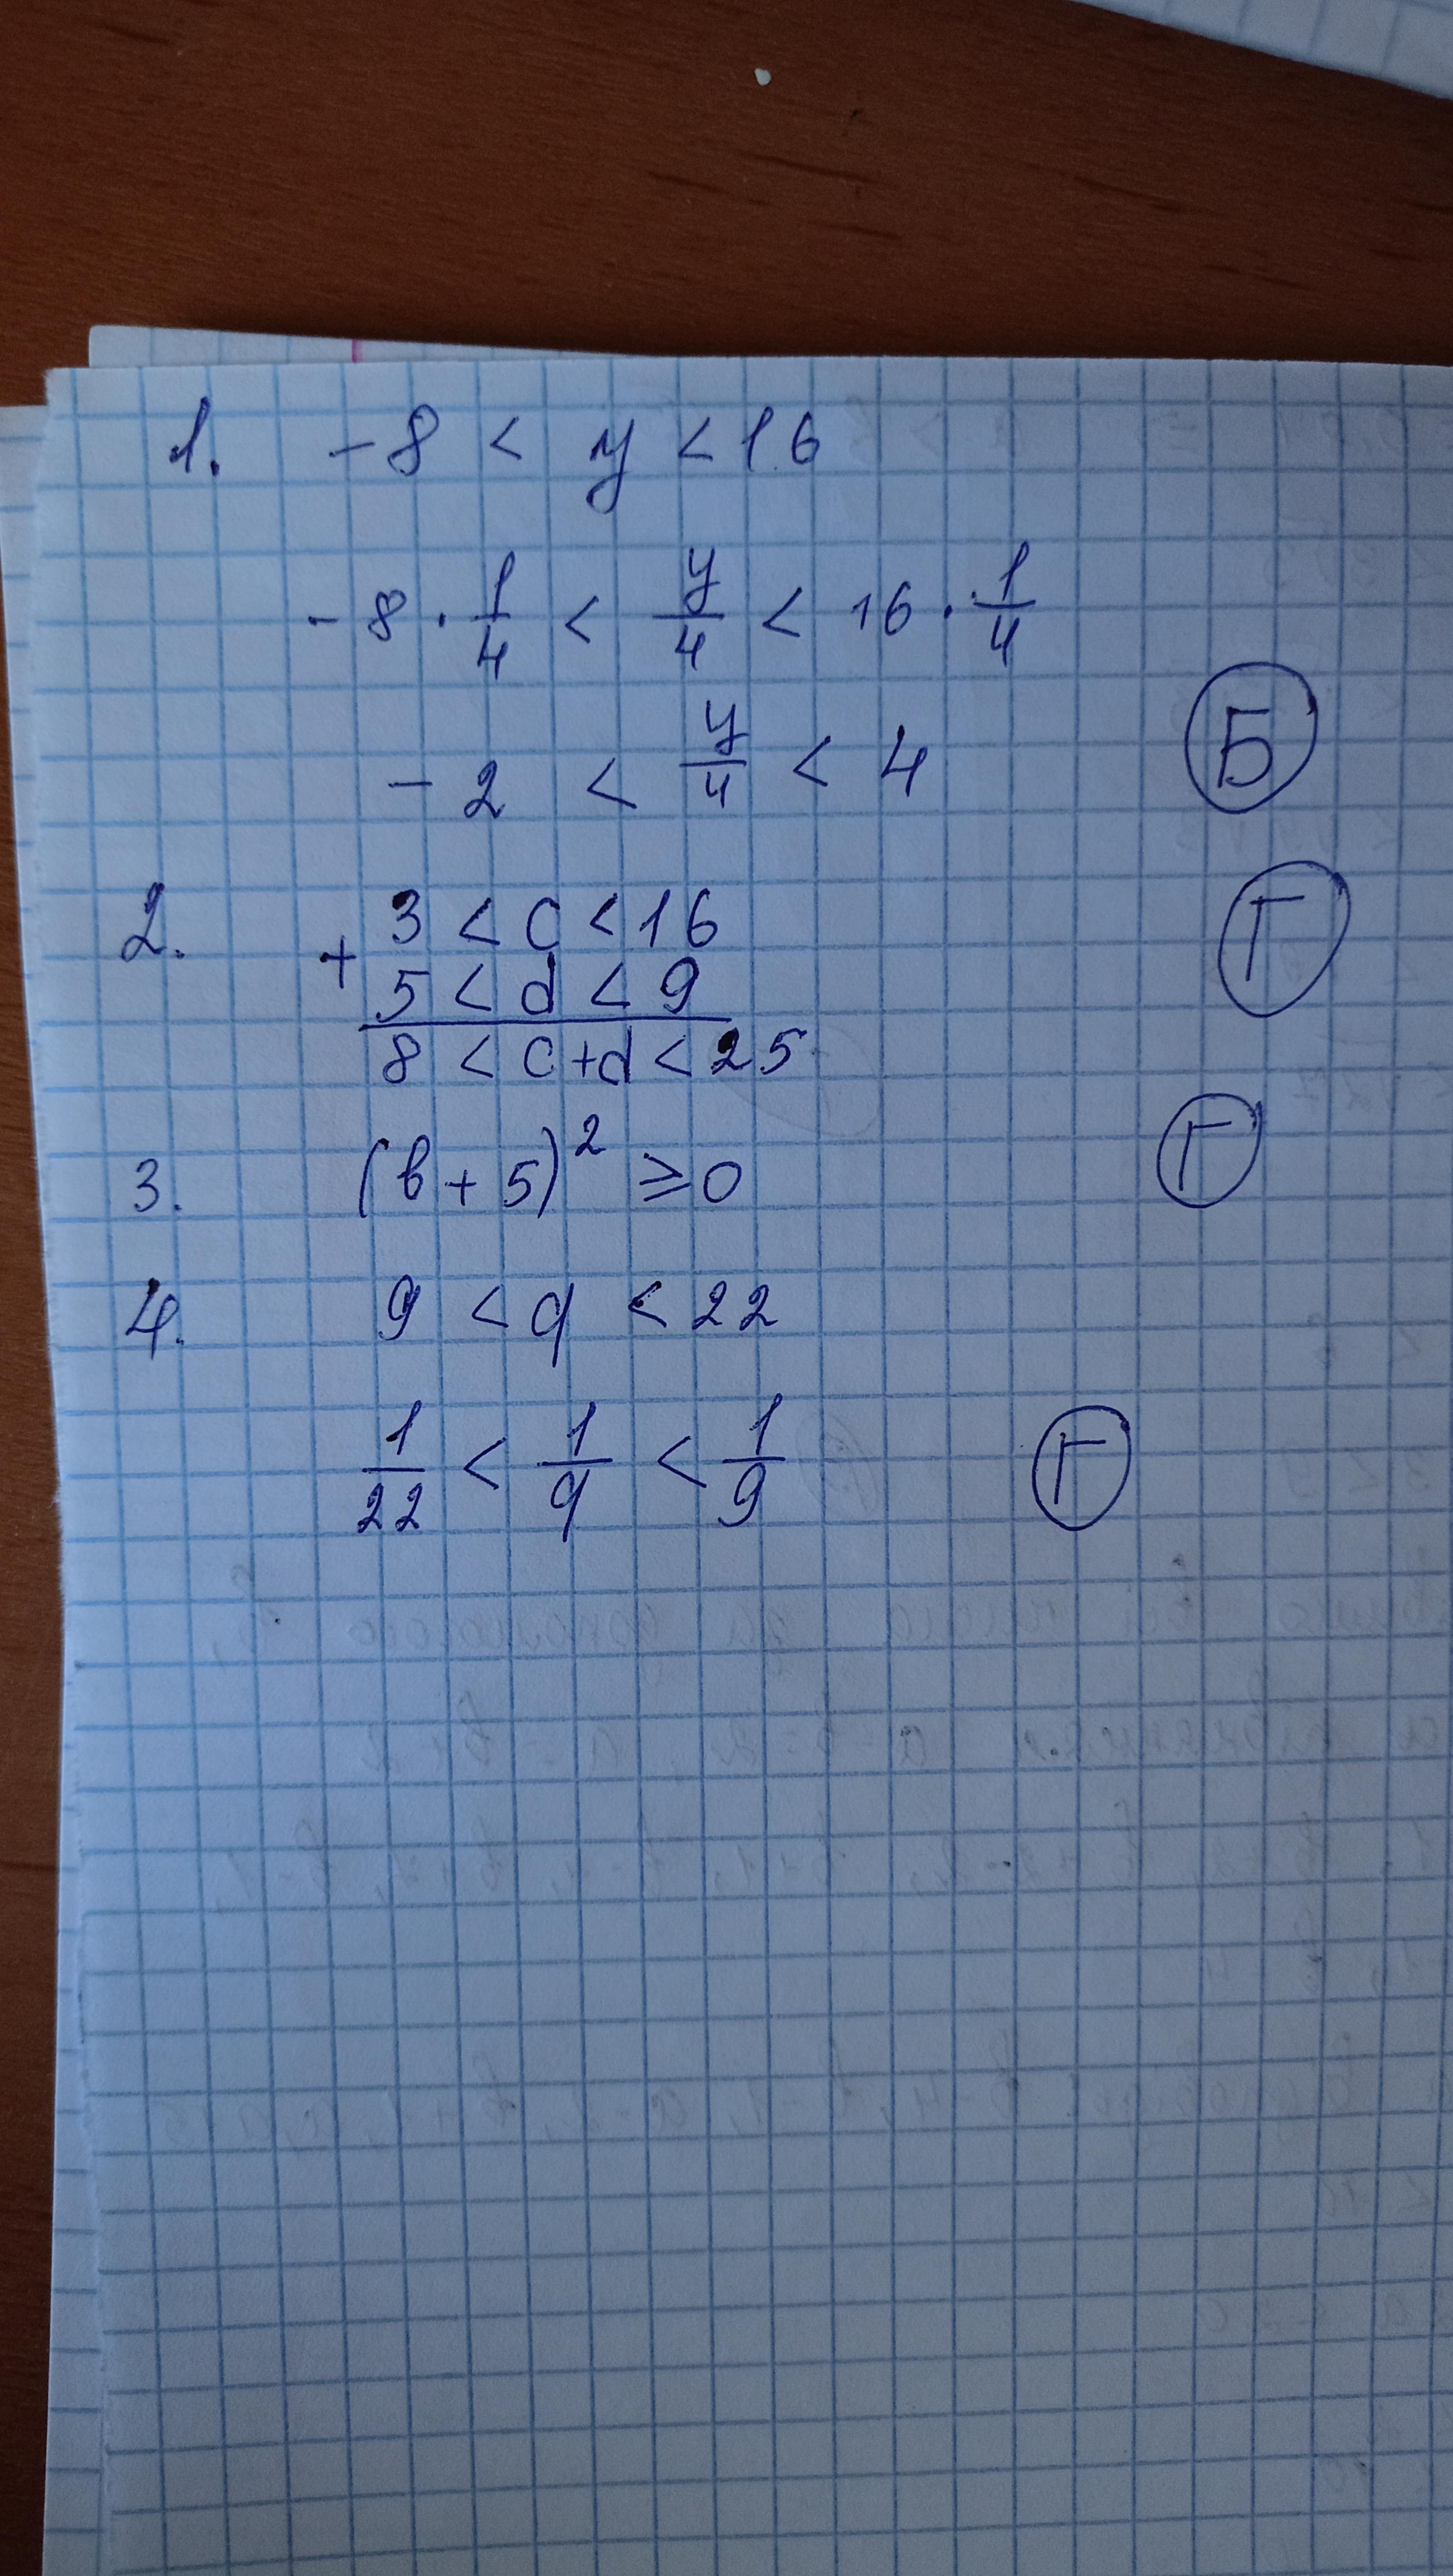 1. -8 < y < 16
-8 · 1/4 < y/4 < 16 · 1/4
-2 < y/4 < 4 Б
2. + 3 < c < 16 Г
5 < d < 9
8 < c+d < 25
3. (b + 5)² ≥ 0 Г
4. 9 < q < 22
1/22 < 1/q < 1/9 Г